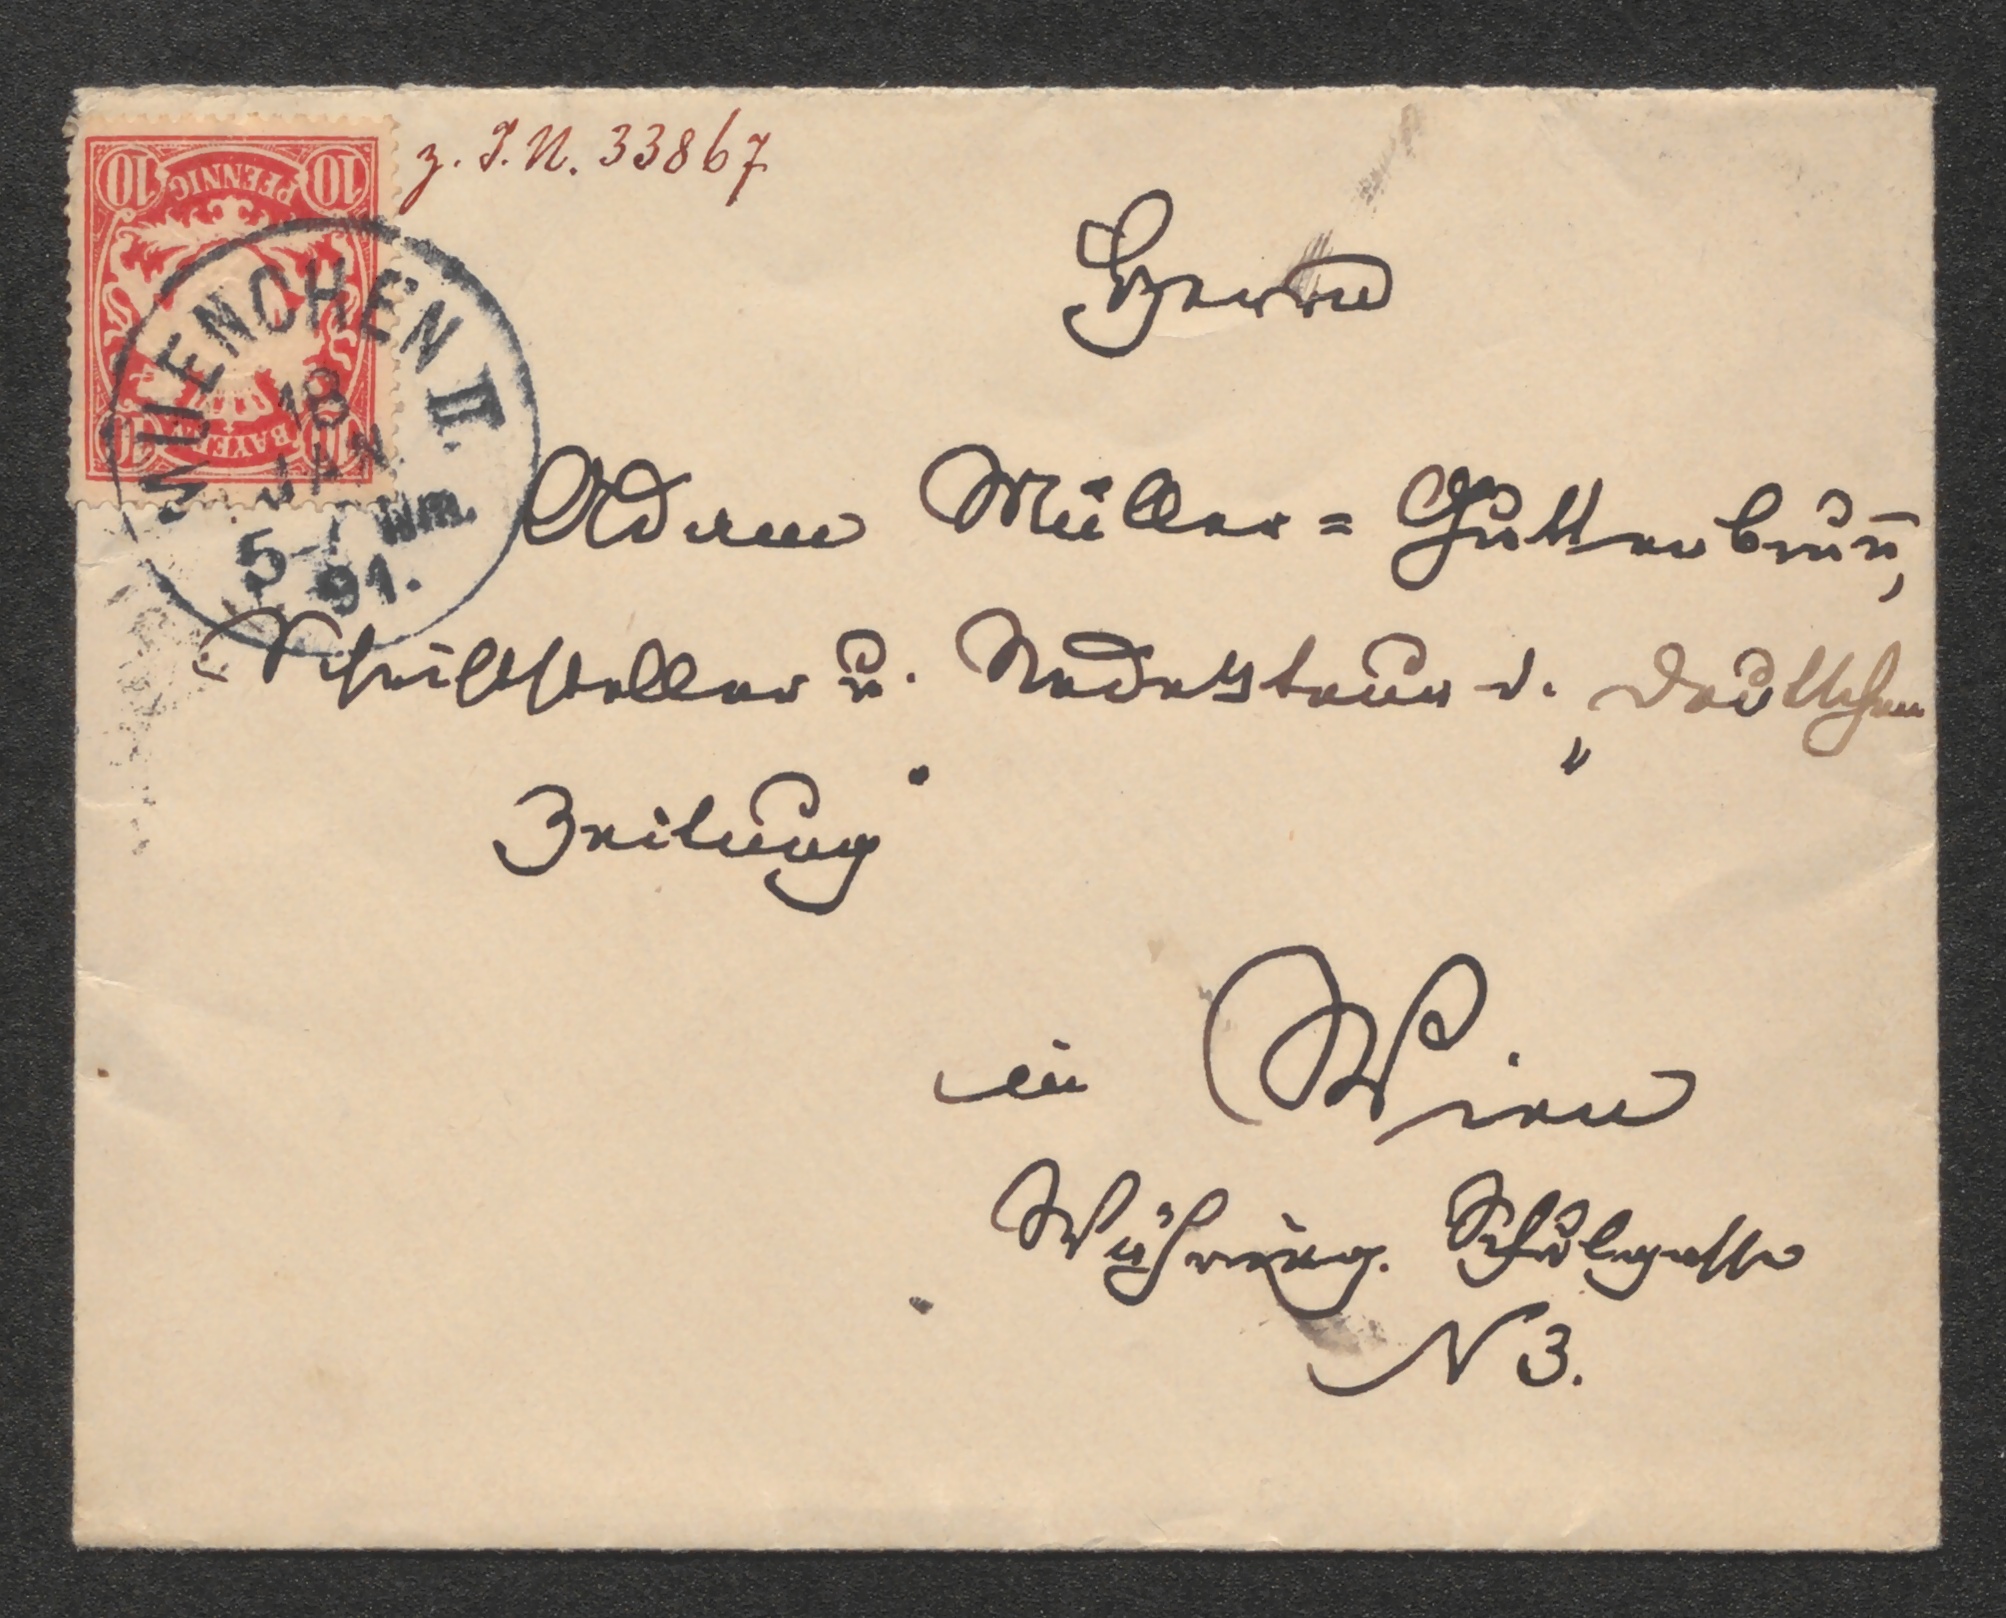 10 PFENNIG 10
10 BAYERN 10
MUENCHEN II
18
JAN
5-  Nm.
91.
z. I.N. 33867
Herrn
Adam Müller=Guttenbrun̄,
Schriftsteller u. Redakteur d. „Deutschen
Zeitung“
in Wien
Währing. Schulgasse
N 3.